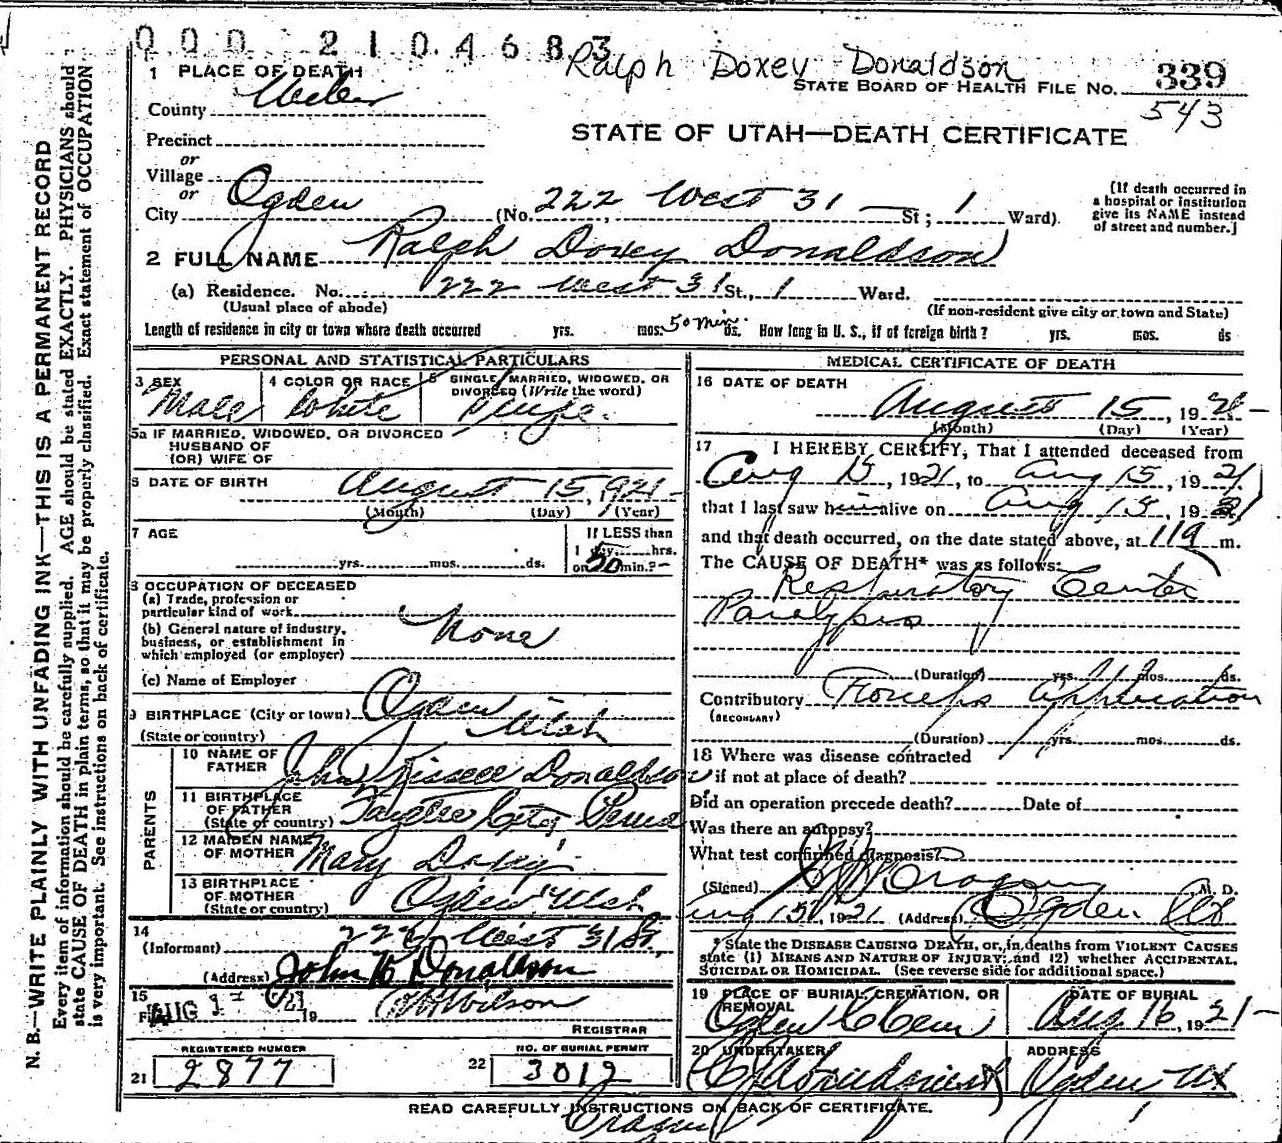 0 0 0 2 1 0 4 6 8 3
Ralph Doxey Donaldson
STATE BOARD OF HEALTH FILE NO. 339
543
STATE OF UTAH—DEATH CERTIFICATE
1 PLACE OF DEATH
County Weber
Precinct
or
Village
or
City Ogden (No. 222 West 31 St; 1 Ward).
(If death occurred in
a hospital or institution
give its NAME instead
of street and number.]
2 FULL NAME Ralph Doxey Donaldson
(a) Residence. No. 222 West 31 St., 1 Ward.
(Usual place of abode) (If non-resident give city or town and State)
Length of residence in city or town where death occurred yrs. mos. 50 min. ds. How long in U. S., if of foreign birth? yrs. mos. ds
PERSONAL AND STATISTICAL PARTICULARS
3 SEX Male
4 COLOR OR RACE White
5 SINGLE, MARRIED, WIDOWED, OR
DIVORCED (Write the word)
Single
5a IF MARRIED, WIDOWED, OR DIVORCED
HUSBAND OF
(OR) WIFE OF
6 DATE OF BIRTH August 15, 1921
(Month) (Day) (Year)
7 AGE
yrs. mos. ds.
If LESS than
1 day, hrs.
or 50 min.?
8 OCCUPATION OF DECEASED
(a) Trade, profession or
particular kind of work
(b) General nature of industry,
business, or establishment in
which employed (or employer)
None
(c) Name of Employer
9 BIRTHPLACE (City or town) Ogden
(State or country) Utah
PARENTS
10 NAME OF
FATHER John Donaldson
11 BIRTHPLACE
OF FATHER
(State of country) Fayette City
12 MAIDEN NAME
OF MOTHER Mary Doxey
13 BIRTHPLACE
OF MOTHER
(State or country) Ogden Utah
14
(Informant) 222 West 31 St.
(Address) John K Donaldson
15
AUG 1 21 19 Wilson
REGISTRAR
REGISTERED NUMBER
21 2877
NO. OF BURIAL PERMIT
22 3012
MEDICAL CERTIFICATE OF DEATH
16 DATE OF DEATH
August 15, 1921
(Month) (Day) (Year)
17 I HEREBY CERTIFY, That I attended deceased from
Aug 15, 1921, to Aug 15, 1921
that I last saw him alive on Aug 15, 1921
and that death occurred, on the date stated above, at 119 m.
The CAUSE OF DEATH* was as follows:
Respiratory Center
Paralysis
(Duration) yrs. mos. ds.
Contributory Forceps Application
(SECONDARY)
(Duration) yrs. mos. ds.
18 Where was disease contracted
if not at place of death?
Did an operation precede death? Date of
Was there an autopsy?
What test confirmed diagnosis?
(Signed) Cragun M. D.
Aug 15, 1921 (Address) Ogden Ut
* State the DISEASE CAUSING DEATH, or, in deaths from VIOLENT CAUSES
state (1) MEANS AND NATURE OF INJURY; and (2) whether ACCIDENTAL,
SUICIDAL OR HOMICIDAL. (See reverse side for additional space.)
19 PLACE OF BURIAL, CREMATION, OR
REMOVAL
Ogden C Cem
DATE OF BURIAL
Aug 16, 1921
20 UNDERTAKER
ADDRESS
Ogden, Ut
READ CAREFULLY INSTRUCTIONS ON BACK OF CERTIFICATE.
Cragun
N. B.—WRITE PLAINLY WITH UNFADING INK—THIS IS A PERMANENT RECORD
Every item of information should be carefully supplied. AGE should be stated EXACTLY. PHYSICIANS should
state CAUSE OF DEATH in plain terms, so that it may be properly classified. Exact statement of OCCUPATION
is very important. See instructions on back of certificate.